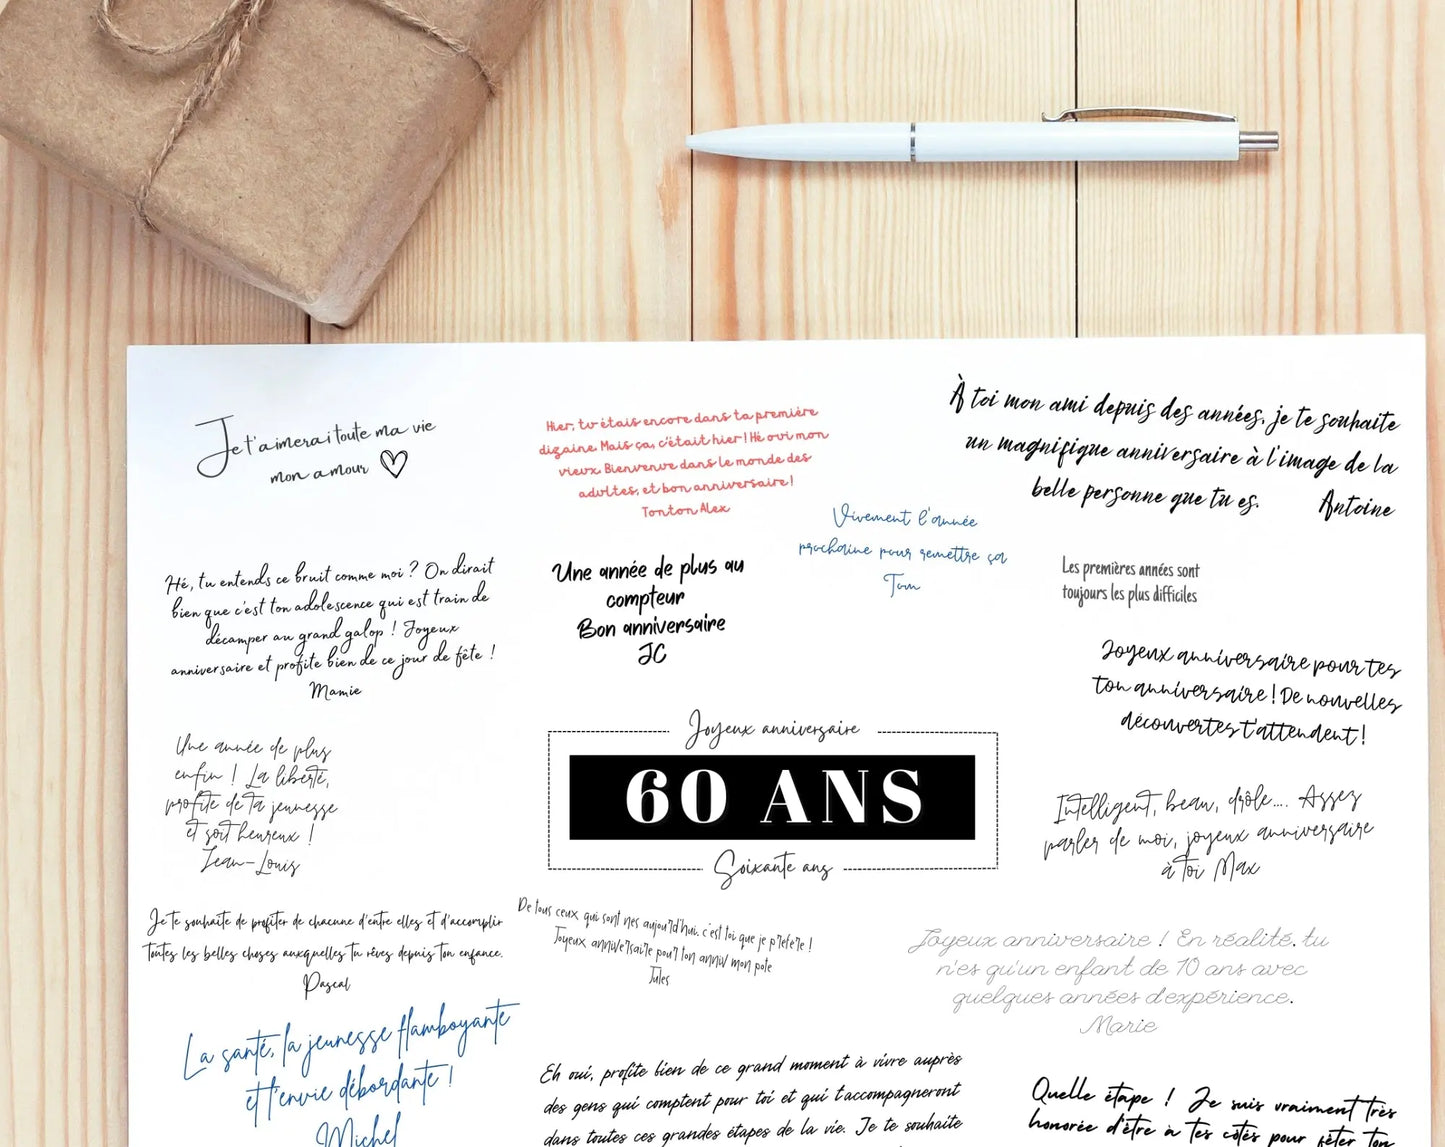 Je t'aimerai toute ma vie
mon amour
Hier, tu étais encore dans ta première
dizaine. Mais ça, c'était hier ! Hé oui mon
vieux. Bienvenue dans le monde des
adultes, et bon anniversaire !
Tonton Alex
À toi mon ami depuis des années, je te souhaite
un magnifique anniversaire à l'image de la
belle personne que tu es. Antoine
Vivement l'année
prochaine pour remettre ça
Tom
Hé, tu entends ce bruit comme moi ? On dirait
bien que c'est ton adolescence qui est train de
décamper au grand galop ! Joyeux
anniversaire et profite bien de ce jour de fête !
Mamie
Une année de plus au
compteur
Bon anniversaire
JC
Les premières années sont
toujours les plus difficiles
Joyeux anniversaire pour tes
ton anniversaire ! De nouvelles
découvertes t'attendent !
Une année de plus
enfin ! La liberté,
profite de ta jeunesse
et soit heureux !
Jean-Louis
Joyeux anniversaire
60 ANS
Soixante ans
Intelligent, beau, drôle.... Assez
parler de moi, joyeux anniversaire
à toi Max
Je te souhaite de profiter de chacune d'entre elles et d'accomplir
toutes les belles choses auxquelles tu rêves depuis ton enfance.
Pascal
De tous ceux qui sont nés aujourd'hui, c'est toi que je préfère !
Joyeux anniversaire pour ton anniv mon pote
Jules
Joyeux anniversaire ! En réalité, tu
n'es qu'un enfant de 10 ans avec
quelques années d'expérience.
Marie
La santé, la jeunesse flamboyante
et l'envie débordante !
Michel
Eh oui, profite bien de ce grand moment à vivre auprès
des gens qui comptent pour toi et qui t'accompagneront
dans toutes ces grandes étapes de la vie. Je te souhaite
Quelle étape ! Je suis vraiment très
honorée d'être à tes côtés pour fêter ton